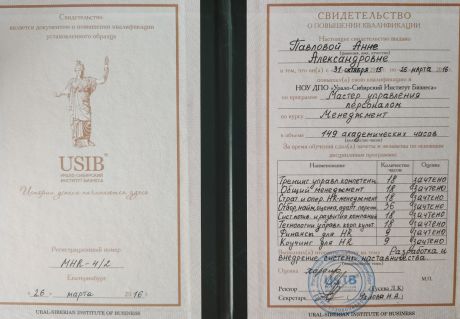 Свидетельство
является документом о повышении квалификации
установленного образца
USIB
УРАЛО-СИБИРСКИЙ
ИНСТИТУТ БИЗНЕСА
История успеха начинается здесь
Регистрационный номер
МНR-4/2
Екатеринбург
«26» марта 2016г.
URAL-SIBERIAN INSTITUTE OF BUSINESS
СВИДЕТЕЛЬСТВО
О ПОВЫШЕНИИ КВАЛИФИКАЦИИ
Настоящее свидетельство выдано
Павловой Анне
Александровне
в том, что он(а) с 31 октября 2015 по 26 марта 2016
повысил(а) свою квалификацию в
НОУ ДПО «Урало-Сибирский Институт Бизнеса»
по программе Мастер управления
персоналом
по курсу Менеджмент
в объеме 149 академических часов
За время обучения сдал(а) зачеты и экзамены по основным
дисциплинам программы:
Наименование Количество часов Оценка
Тренинг управл. 18 зачтено
Общий менеджмент 18 зачтено
Страт и опер HR-менеджмент 18 зачтено
Отбор, найм, оценка, адапт. 36 зачтено
18 зачтено
Технологии управл. корп. культ. 18 зачтено
Финансы для HR 18 зачтено
Коучинг для HR 9 зачтено
на тему Разработка и
внедрение системы наставничества
Оценка хорошо
М.П.
Ректор (Гусева Л.К)
Секретарь
URAL-SIBERIAN INSTITUTE OF BUSINESS